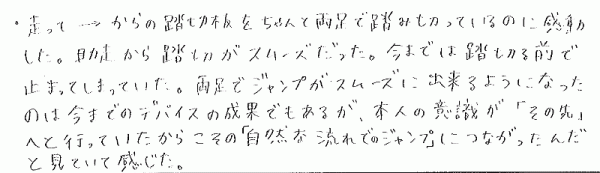 ・走って → からの踏切板をちゃんと両足で踏み切っているのに感動
した。助走から踏切がスムーズだった。今までは踏切る前で
止まってしまっていた。両足でジャンプがスムーズに出来るようになった
のは今までのデバイスの成果でもあるが、本人の意識が「その先」
へと行っていたからこその「自然な流れでのジャンプ」につながったんだ
と見ていて感じた。